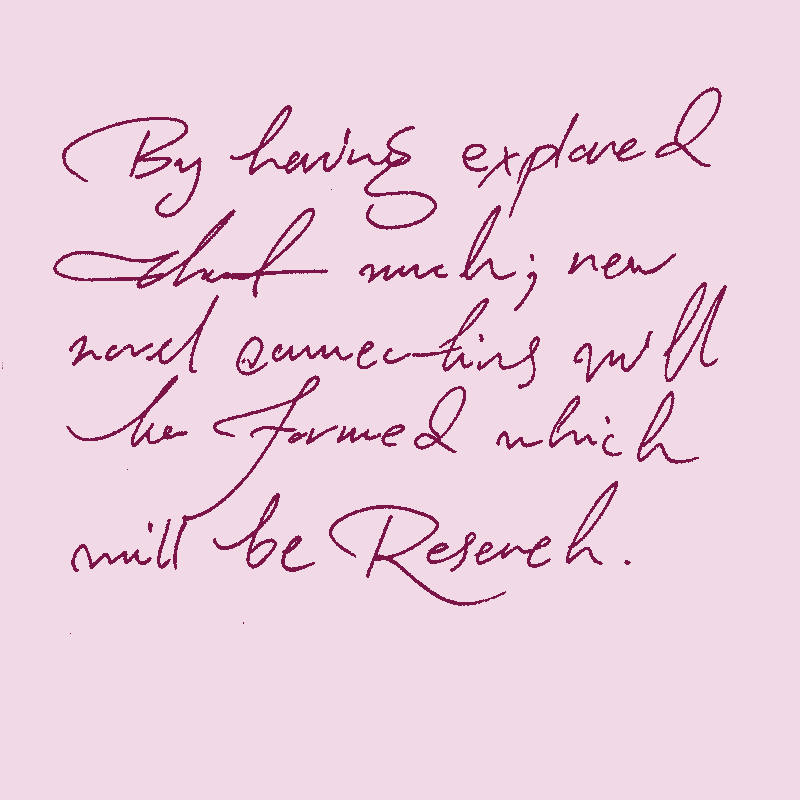 By having explored
that much; new
novel connections will
be formed which
will be Reserch.